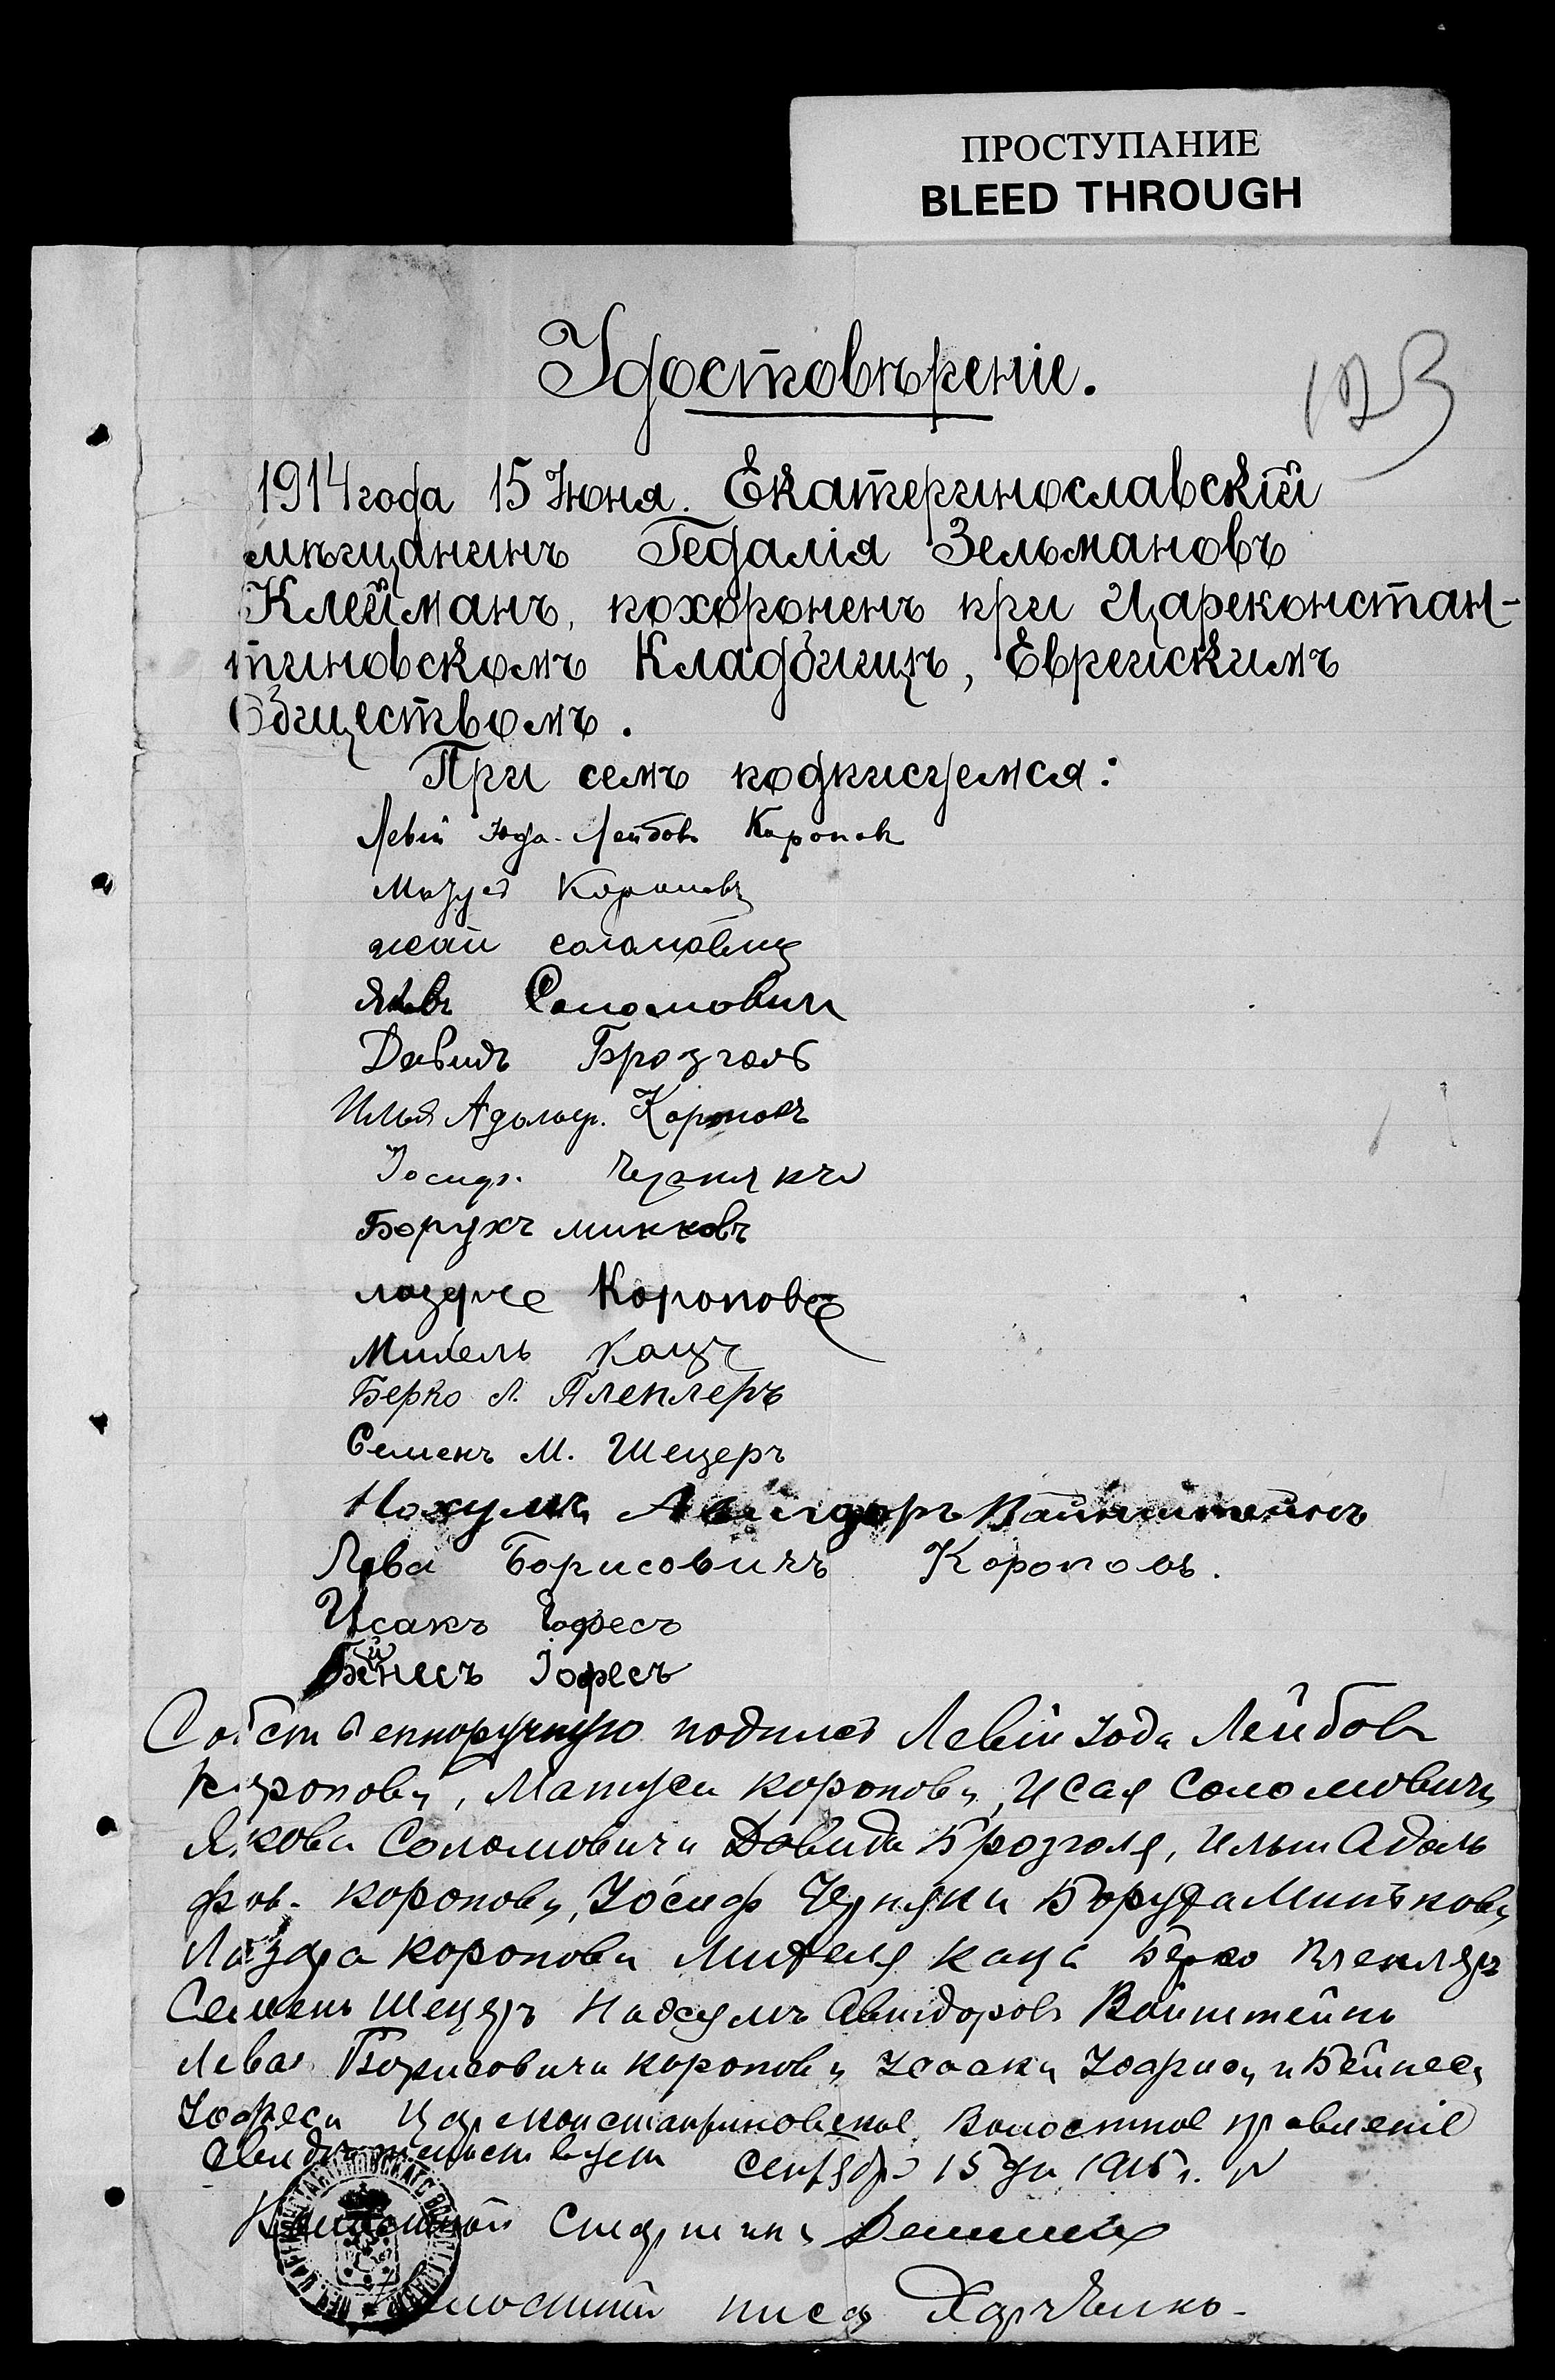 ПРОСТУПАНИЕ
BLEED THROUGH
Удостовѣреніе.
123
1914 года 15 Июня. Екатеринославскій
мѣщанинъ Гедалія Зельмановъ
Клейманъ, похороненъ при Цареконстан-
тиновскомъ Кладбищѣ, Еврейскимъ
Обществомъ.
При семъ подписуемся:
Левій Юда-Лейбовъ Каропов
Матуса Коропова
исай саламовичъ
Яковъ Соломовичъ
Давидъ Брозголь
Илья Адольф. Коропов
Іосифъ Чернякъ
Борухъ минковъ
лозаръ Коропов
Михель Кацъ
Берко Л. Плеклеръ
Семенъ М. Шецеръ
Нохумъ Авигдоръ Вайнштейнъ
Лева Борисовичъ Короповъ.
Исакъ Іофесъ
Бейнесъ Іофесъ
Собственноручную подпись Левій Юда Лейбовъ
Коропова, Матуса Коропова, Исая Соломовича
Якова Соломовича Давида Брозголя, Ильи Адоль
фов. Коропова, Іосиф Черняка Боруха Минькова,
Лазара Коропова Михеля Каца Берко Плекляръ
Семенъ Шецеръ Нахумъ Авигдоровъ Вайнштейнъ
Лева Борисовича Коропова Исаака Іофиса и Бейнеса
Іофеса Цареконстантиновское Волостное правленіе
Свидѣтельствуетъ Сентября 15 дн 1915 г.
Волостной Старшина
Волостной писарь Харченко